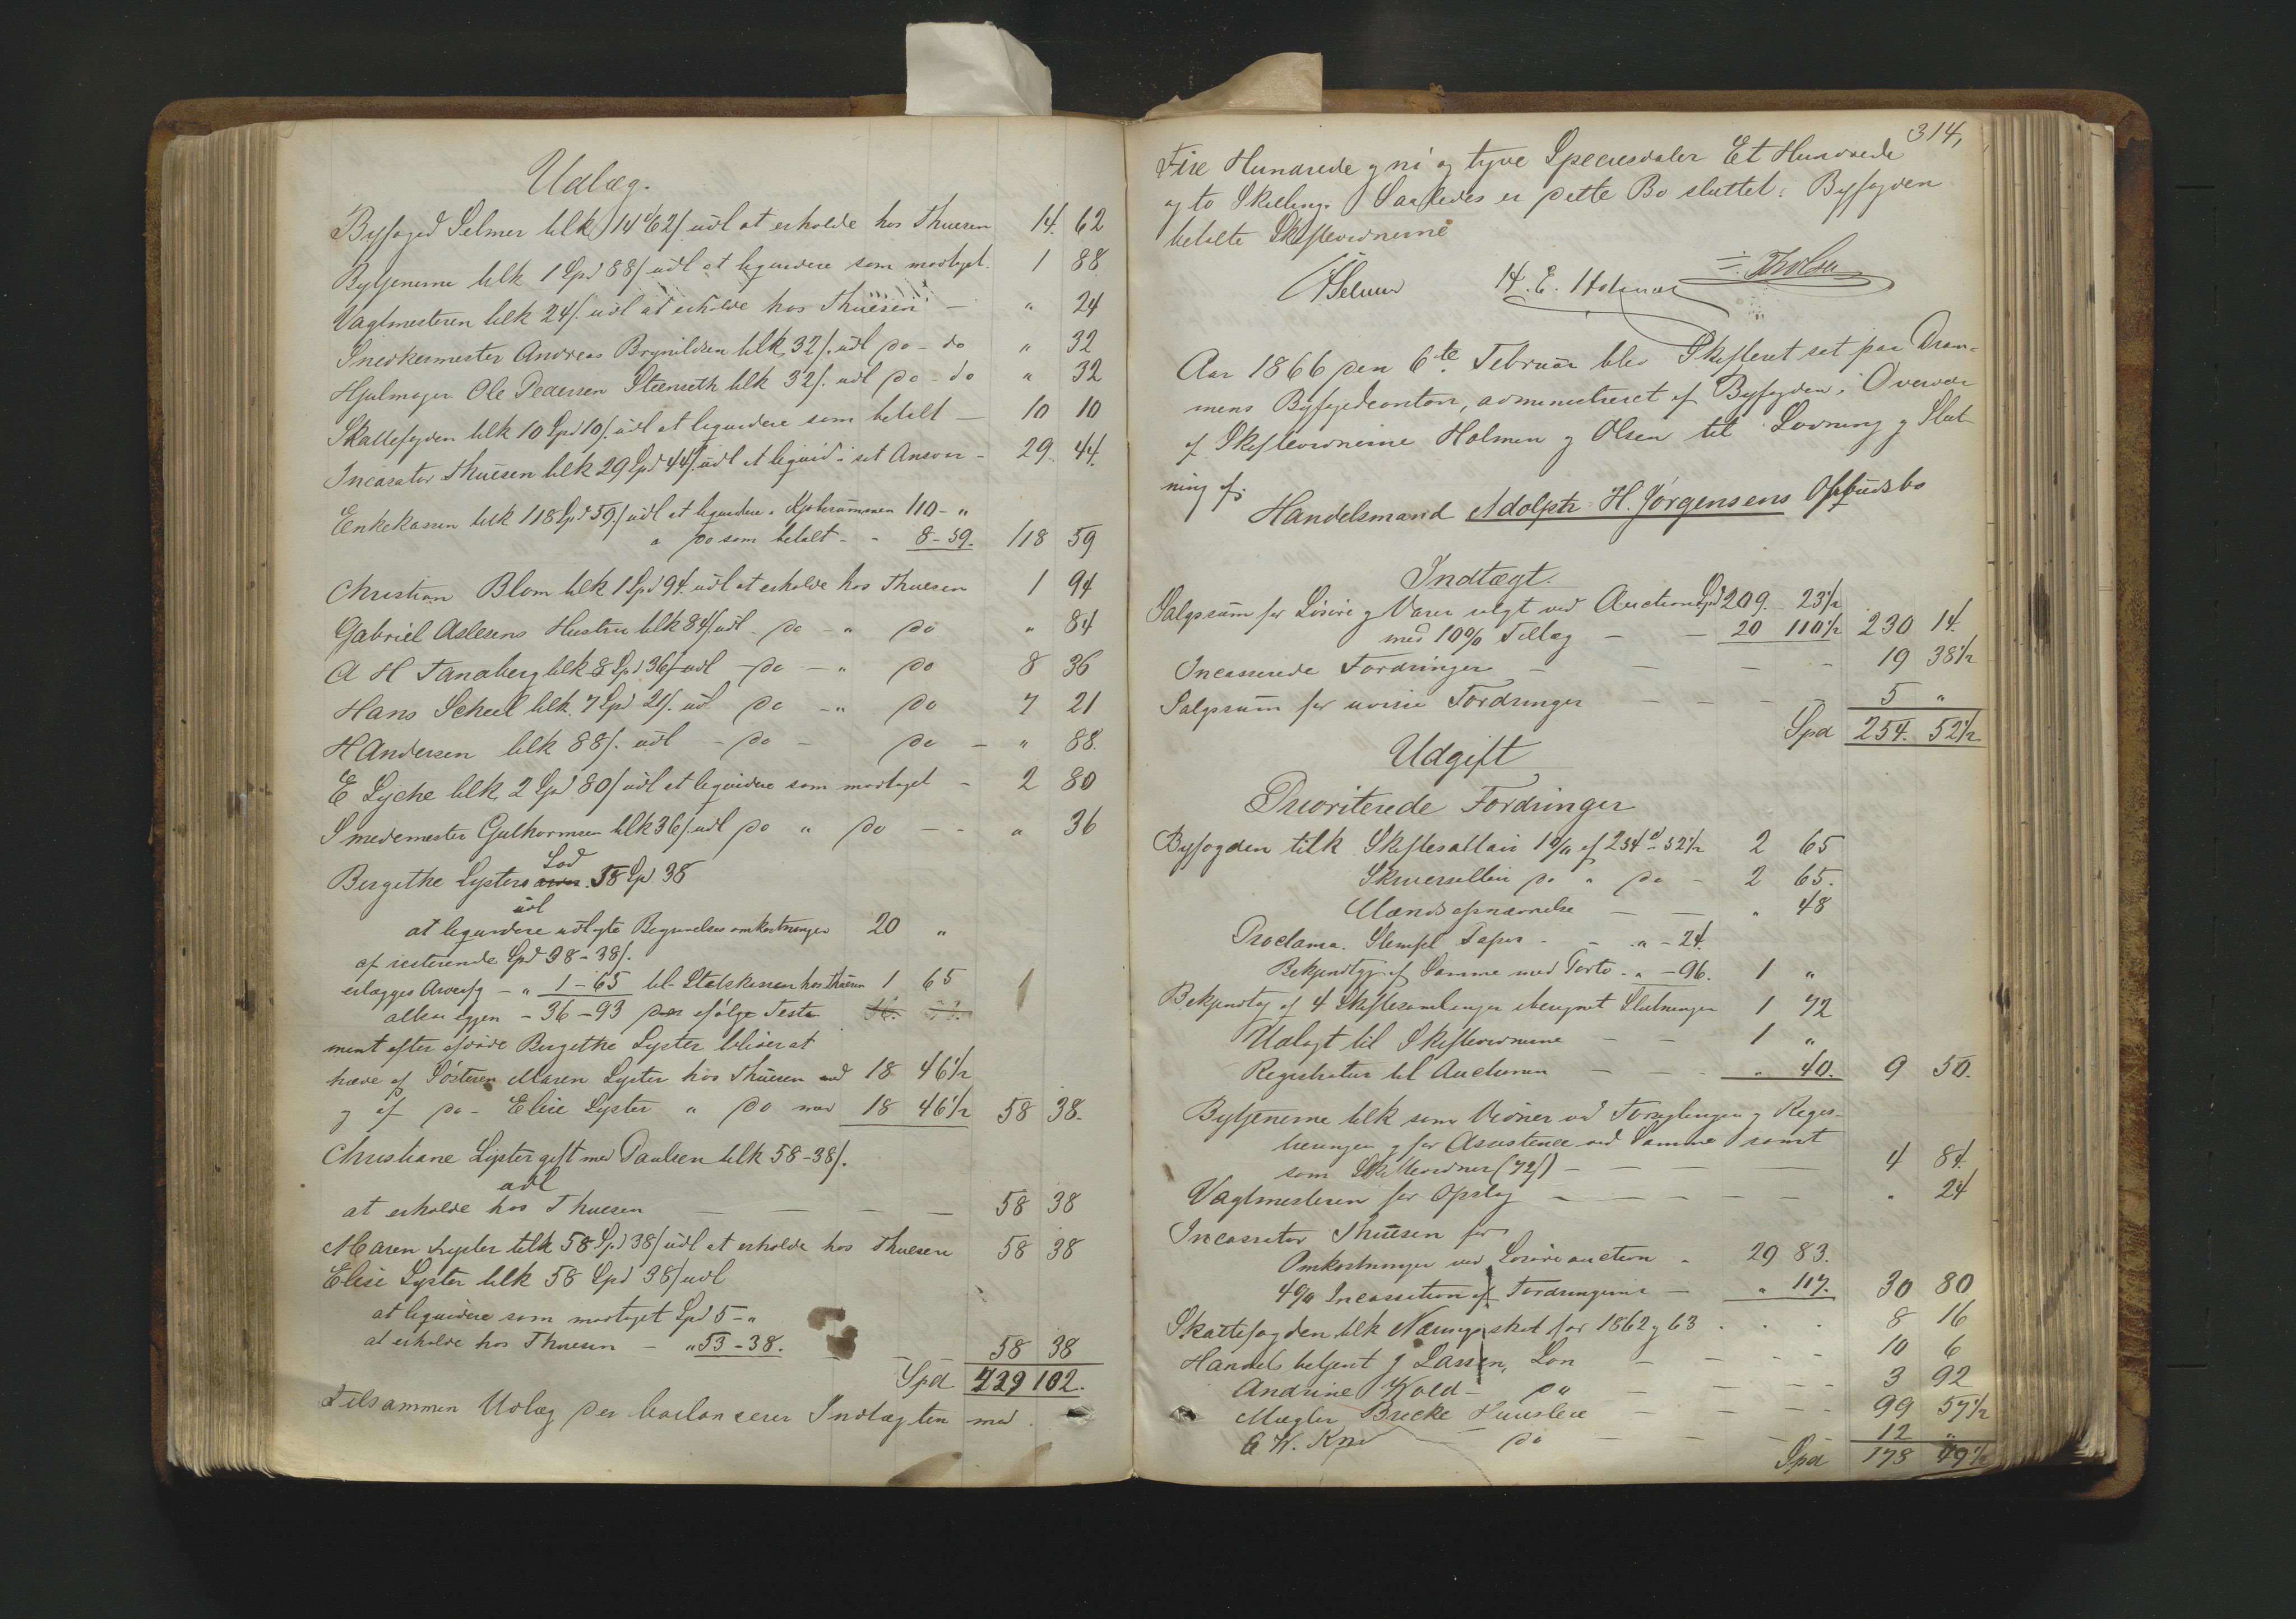 Udlæg.
Byfoged Selmer tilk 14 62/ udl at erholde hos Thuesen 14. 62
Bytjenerne tilk 1 Spd 88/ udl at liqvidere som modtaget. 1 88
Vagtmesteren tilk 24/. udl at erholde hos Thuesen — " 24
Snedkermester Andreas Brynildsen tilk 32/. udl do - do " 32
Hjulmager Ole Pedersen Steenseth tilk 32/. udl do - do " 32
Skattefogden tilk 10 Spd 10/. udl at liqvidere som betalt — 10 10
Incasator Thuesen tilk 29 Spd 44/. udl at liqvid i sit Ansvar - 29 44.
Enkekassen tilk 118 Spd 59/. udl at liqvidere i Kjøbesummen 110 - "
" do som betalt - - 8 - 59. 118 59
Christian Blom tilk 1 Spd 94. udl at erholde hos Thuesen 1 94
Gabriel Aslesens Hustru tilk 84/. udl - do - " do " 84
A H Tandberg tilk 8 Spd 36/ udl - do — " do 8 36
Hans Scheel tilk. 7 Spd 21/. udl do - " do 7 21
H Andersen tilk 88/. udl - do - do - " 88.
E Lyche tilk. 2 Spd 80/ udl at liqvidere som modtaget - 2 80
Smedemester Guthormsen tilk 36/. udl do " do - - " 36
Lod
Bergithe Lysters 58 Sp. 38
udl
at liqvidere udlagte Begravelsesomkostninger 20 "
af resterende Spd 38 - 38/.
erlægges Arveafg - " 1 - 65 til Statskassen hos Thuesen 1 65
altsaa igjen - 36 - 93 ifølge Testa
ment efter afdøde Bergithe Lyster bliver at
hæve af Søsteren Maren Lyster hos Thuesen med 18 46 1/2
og af do - Elise Lyster " do med 18 46 1/2 58 38.
Christiane Lyster gift med Paulsen tilk 58 - 38/.
udl
at erholde hos Thuesen — — — — 58 38
Maren Lyster tilk 58 Spd 38/ udl at erholde hos Thuesen 58 38
Elise Lyster tilk 58 Spd 38/ udl
at liqvidere som modtaget Spd 5 - "
at erholde hos Thuesen - " 53 - 38. - - 58 38
Spd 429 102.
Tilsammen Udlæg der balancerer Indtægten med
314,
Fire Hundrede og ni og tyve Speciesdaler Et Hundrede
og to Skilling. Saaledes er dette Bo sluttet. Byfogden
betalte Skifteordnerne
Selmer H. E. Holmen Th Olsen
Aar 1866 den 6te Februar blev Skifteret sat paa Dram-
mens Byfogedcontoir, administreret af Byfogden, i Overvær
af Skifteordnerne Holmen og Olsen til Lovning og Slut-
ning af:
Handelsmand Adolph H. Jørgensens Opbudsbo
Indtægt.
Salgssum for Løsøre og Varer solgt ved Auction Spd 209. 23 1/2
med 10% Tillæg — — 20 110 1/2 230 14.
Incasserede Fordringer — — — - 19 38 1/2
Salgssum for uvisse Fordringer - - - - 5 "
Spd 254. 52 1/2
Udgift
Prioriterede Fordringer
Byfogden tilk Skiftesallair 1% af 254 - 52 1/2 2 65
Skriversallair do " do - 2 65.
Mænds opnævnelse — — " 48
Proclama. Stempl Papir - - " - 24.
Bekjendtgj af Samme med Porto - " - 96. 1 "
Bekjendtgj af 4 Skiftesamlinger iberegnet Slutningen 1 72
Udlagt til Skifteordnerne — - 1 "
Registratur til Auctionen — - - " 40. 9 50.
Bytjenerne tilk som Vidner ved Forseglingen og Regis-
treringen og for Assistence ved Samme samt
som Skifteordner (72/) - — — — 4 84.
Vagtmesteren for Opslag — — — — " 24
Incassator Thuesen for
Omkostninger ved Løsøreauction - 29 83.
4% Incassation af Fordringerne — " 117. 30 80
Skattefogden tilk Næringsskat for 1862 og 63 . . . 8 16
Handelsbetjent J Lassen, Løn — — - - 10 6
Andrine Wold - do — — - - 3 92
Mægler Brecke Huusleie — — - - 99 57 1/2
do — — - 12 "
Spd 178 49 1/2